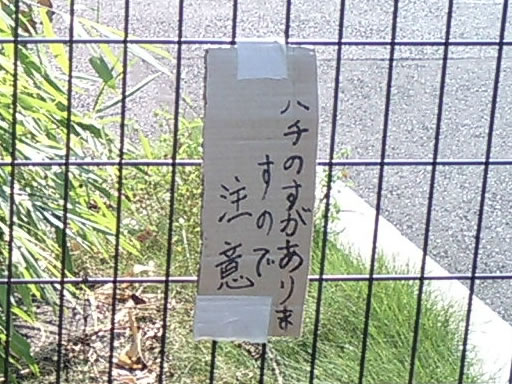 ハチのすがありま
すので
注意